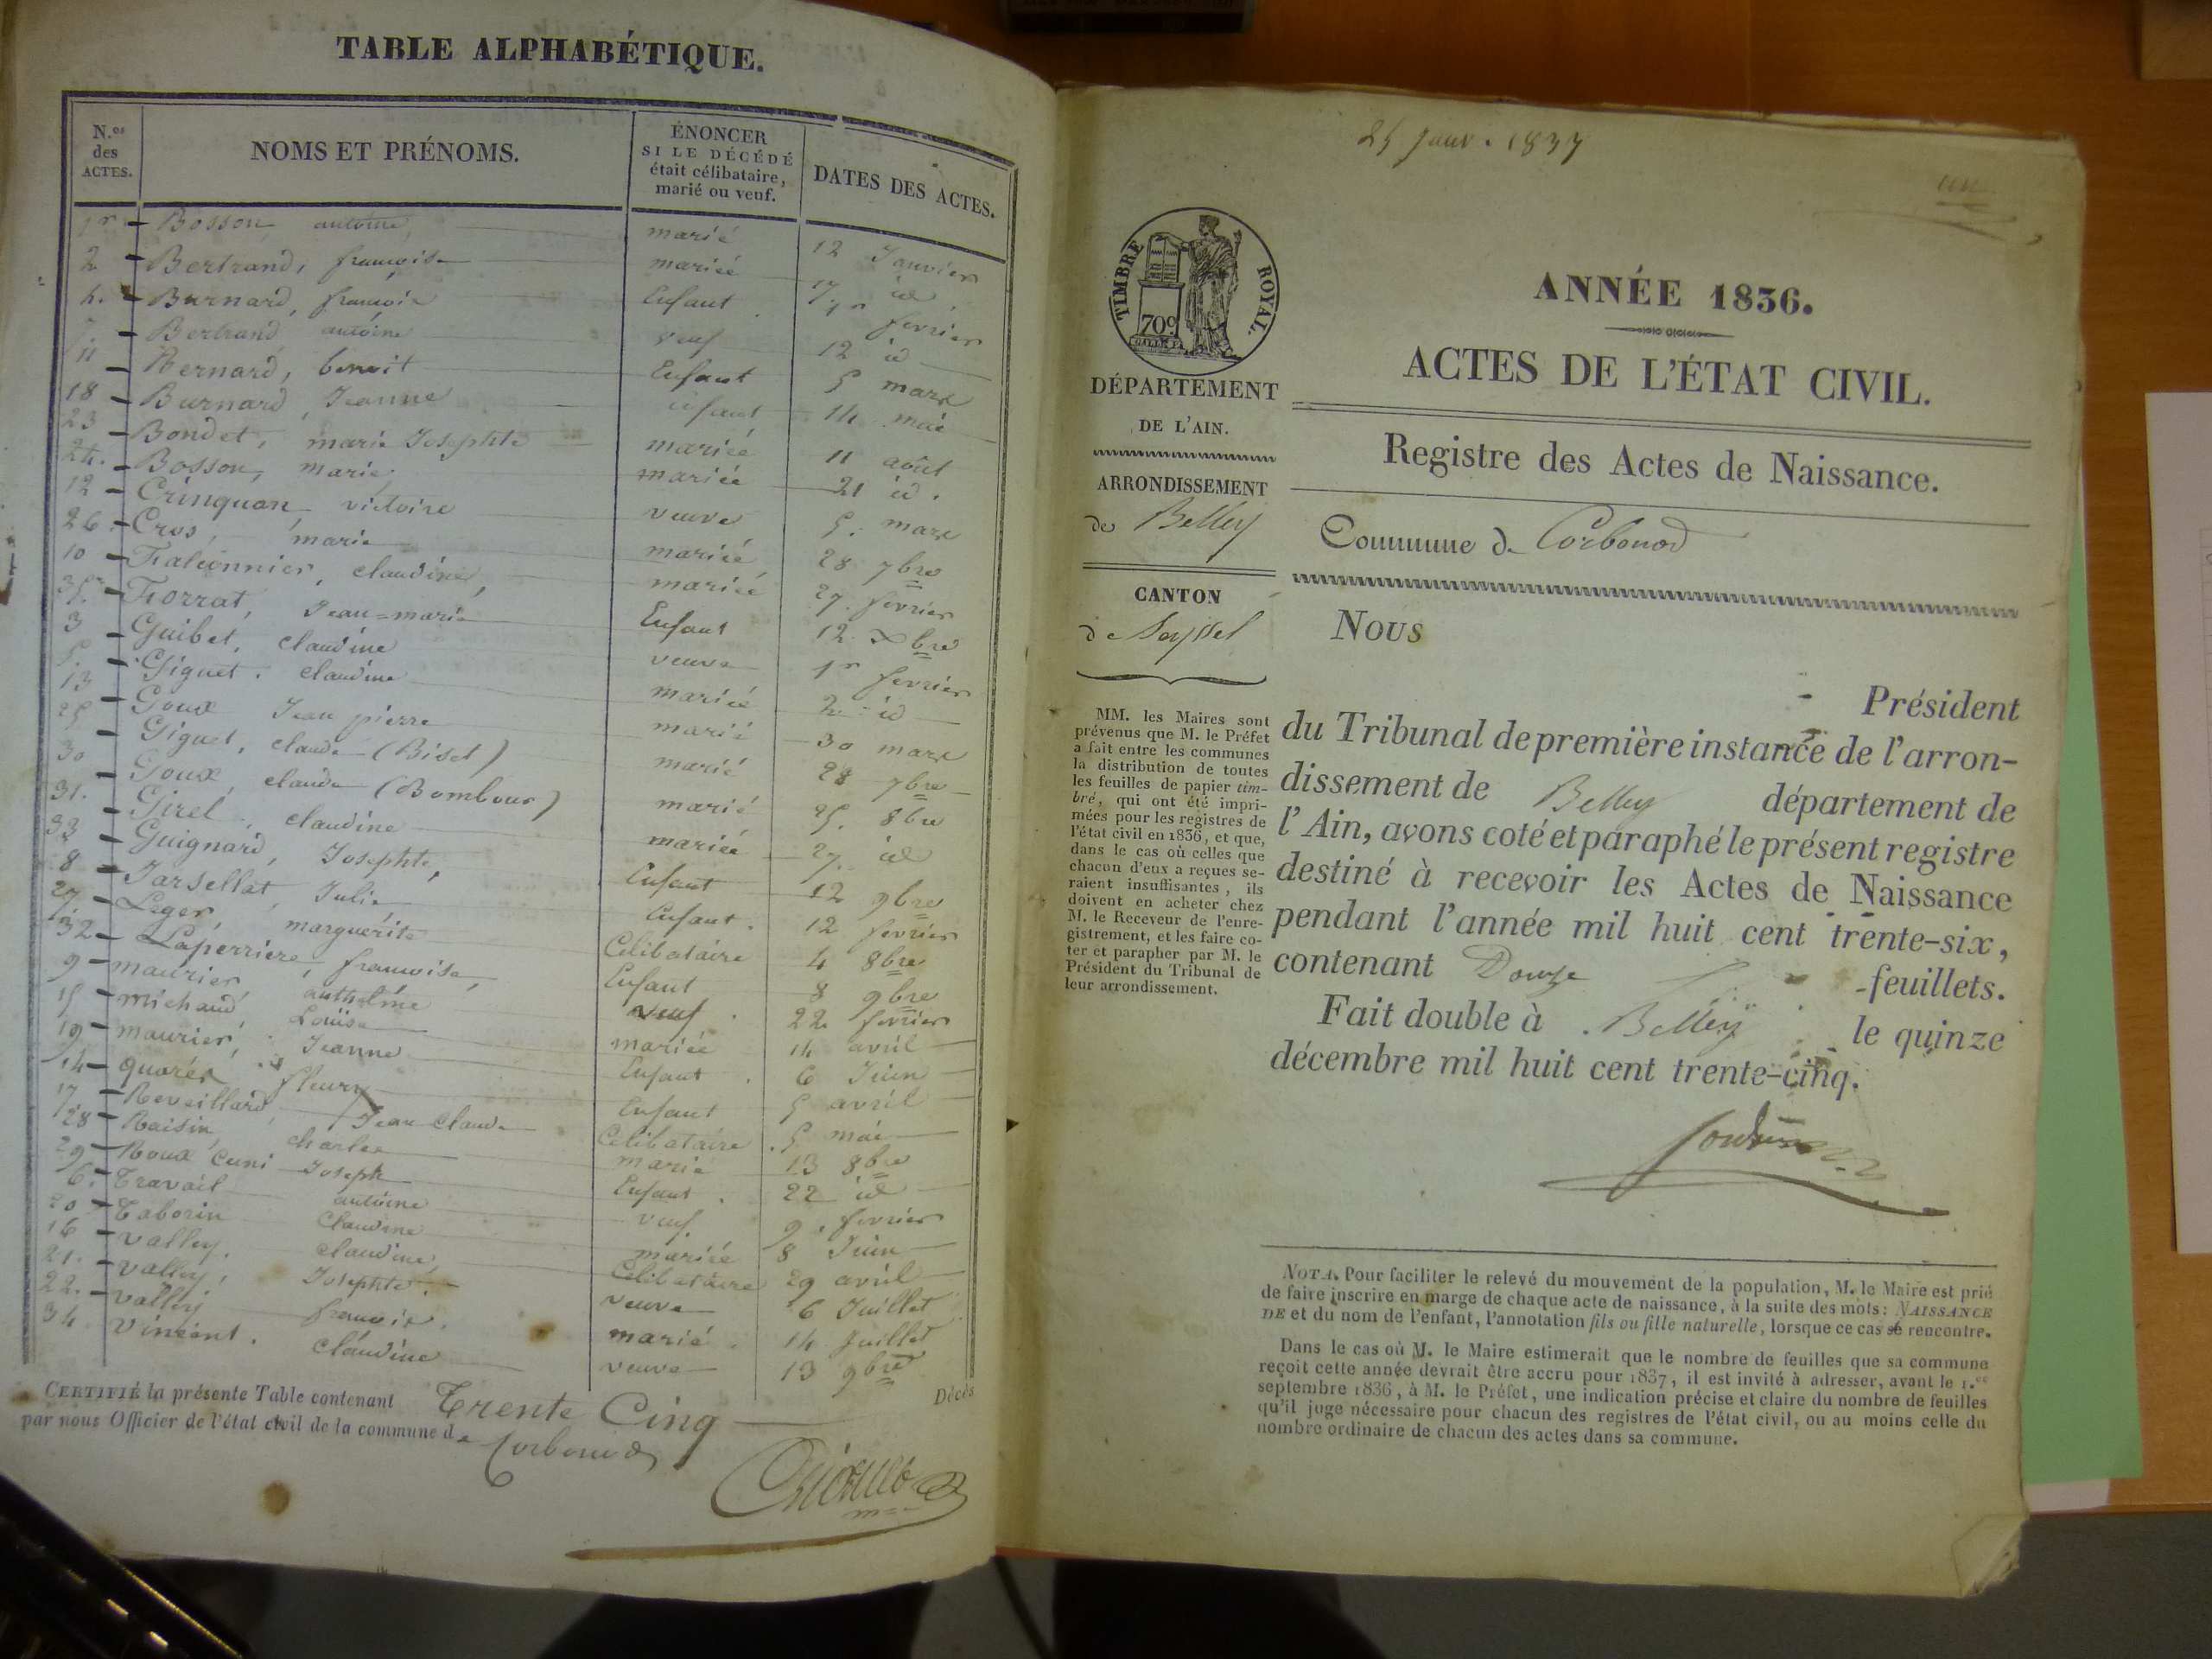 TABLE ALPHABÉTIQUE.
N.os des ACTES.
NOMS ET PRÉNOMS.
ÉNONCER
SI LE DÉCÉDÉ
était célibataire,
marié ou veuf.
DATES DES ACTES.
1r Bosson antoine, marié 12 Janvier
2 Bertrand, françoise mariée 17 id
4. Burnard, françois Enfant 1r fevrier
7. Bertrand antoine veuf 12 id
11 Bernard, benoit Enfant 5 mars
18 Burnard, Jeanne enfant 14 mai
23 Bondet, marie Josephte mariée 11 août
24. Bosson, marie mariée 21 id.
12 Crinquan victoire veuve 5. mars
26. Cros, marie mariée 28 7bre
10 Falconnier, claudine, mariée 27. fevrier
35. Forrat, Jean=marie Enfant 12 Xbre
3 Guibet, claudine veuve 1r fevrier
5. Giguet. claudine mariée 2 id
13 Goux Jean pierre marié 30 mars
25 Giguet, claude (Biset) marié 28 7bre
30 Goux, claude (Bombour) marié 25. 8bre
31. Girel, claudine mariée 27. id
33 Guignard, Josephte, Enfant 12 9bre
8 Jarsellat, Julie Enfant. 12 fevrier
27 Leger, marguérite Célibataire 4 8bre
32 Laperriere, françoise, Enfant 8 9bre
9 maurier anthelme veuf. 22 fevrier
15 michaud, Louise mariée 14 avril
19 maurier, Jeanne Enfant. 6 Juin
14 quarés fleury Enfant 5 avril
17 Reveillard, Jean claude Célibataire. 5 mai
28 Raisin charles marié 13 8bre
29 Roux Cuni Joseph Enfant. 22 id
6. Travail antoine veuf. 9. fevrier
20 Taborin Claudine mariée 8 Juin
16 valley. claudine, Célibataire 29 avril
21. valley, Josephte. veuve 6 Juillet
22. valley françois. marié. 14 Juillet
34 vincent. claudine veuve 13 9bre
Décès
CERTIFIÉ la présente Table contenant Trente Cinq
par nous Officier de l'état civil de la commune de Corbonod
25 Janv. 1837
un
TIMBRE ROYAL.
70c
DÉPARTEMENT
DE L'AIN.
ARRONDISSEMENT
de Belley
CANTON
de Seyssel
MM. les Maires sont
prévenus que M. le Préfet
a fait entre les communes
la distribution de toutes
les feuilles de papier tim-
bré, qui ont été impri-
mées pour les registres de
l'état civil en 1836, et que,
dans le cas où celles que
chacun d'eux a reçues se-
raient insuffisantes, ils
doivent en acheter chez
M. le Receveur de l'enre-
gistrement, et les faire co-
ter et parapher par M. le
Président du Tribunal de
leur arrondissement.
ANNÉE 1836.
ACTES DE L'ÉTAT CIVIL.
Registre des Actes de Naissance.
Commune de Corbonod
Nous
Président
du Tribunal de première instance de l'arron-
dissement de Belley département de
l'Ain, avons coté et paraphé le présent registre
destiné à recevoir les Actes de Naissance
pendant l'année mil huit cent trente-six,
contenant Douze feuillets.
Fait double à Belley le quinze
décembre mil huit cent trente-cinq.
NOTA. Pour faciliter le relevé du mouvement de la population, M. le Maire est prié
de faire inscrire en marge de chaque acte de naissance, à la suite des mots: NAISSANCE
DE et du nom de l'enfant, l'annotation fils ou fille naturelle, lorsque ce cas se rencontre.
Dans le cas où M. le Maire estimerait que le nombre de feuilles que sa commune
reçoit cette année devrait être accru pour 1837, il est invité à adresser, avant le 1.er
septembre 1836, à M. le Préfet, une indication précise et claire du nombre de feuilles
qu'il juge nécessaire pour chacun des registres de l'état civil, ou au moins celle du
nombre ordinaire de chacun des actes dans sa commune.